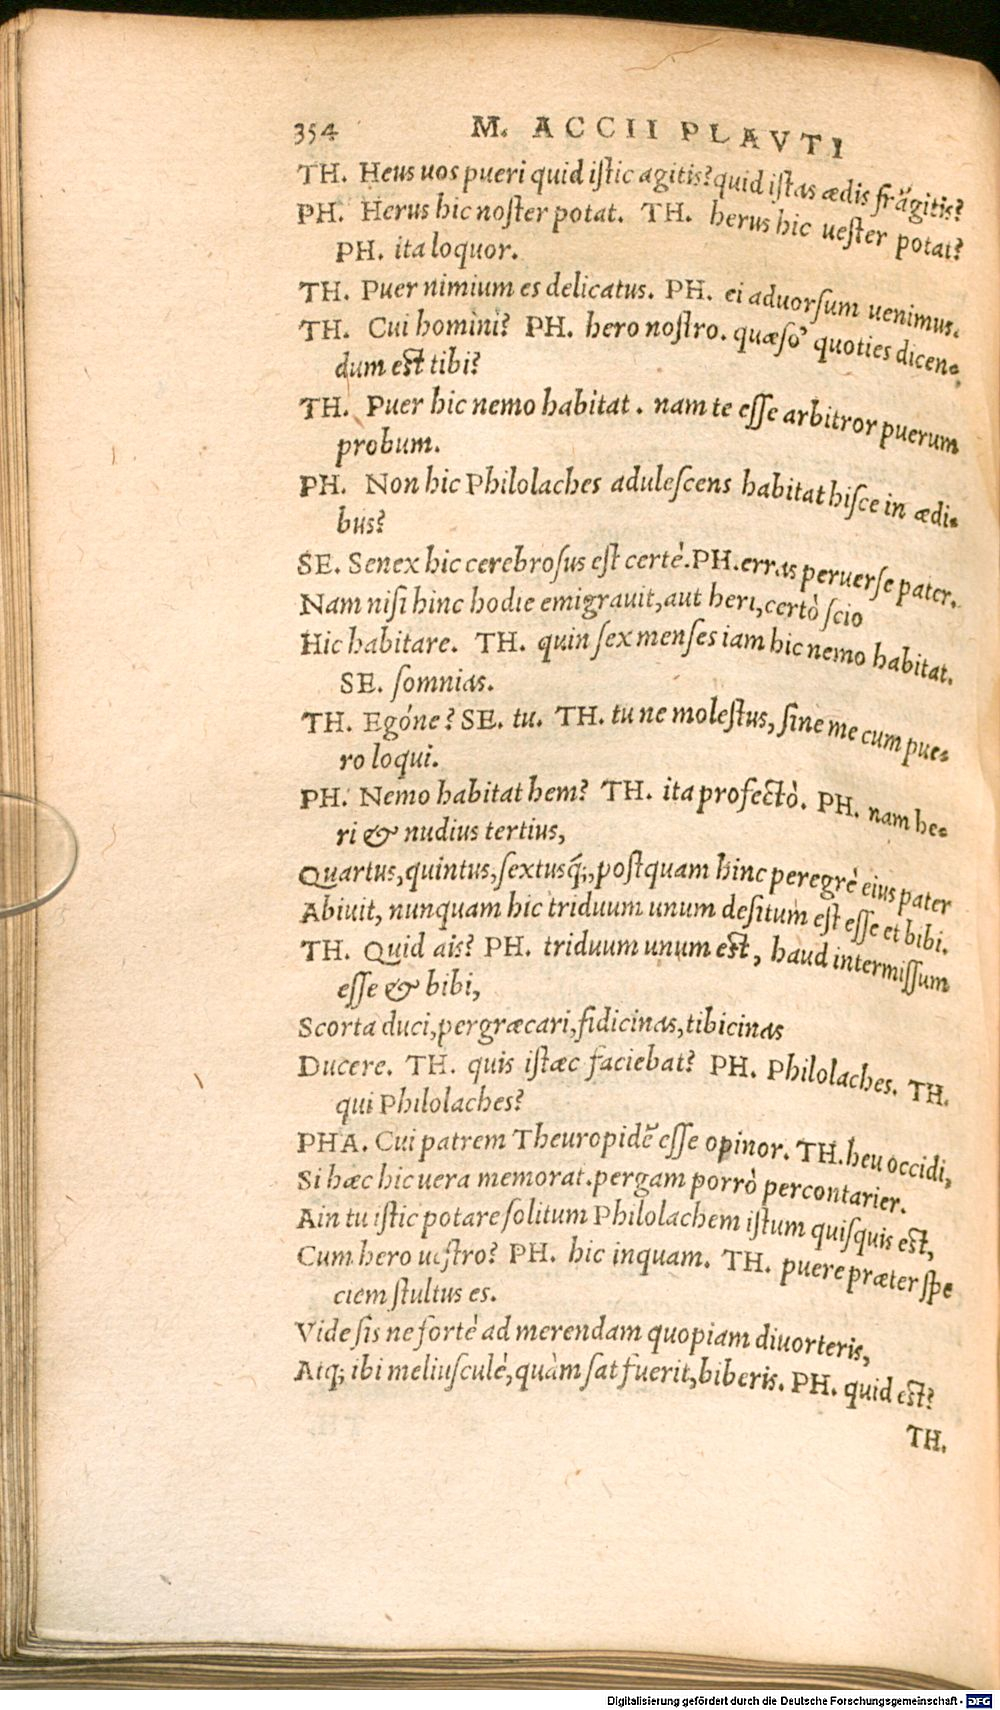 354 M. ACCII PLAVTI
TH. Heus uos pueri quid iſtic agitis? quid iſtas ædis frãgitis?
PH. Herus hic noſter potat. TH. herus hic ueſter potat?
PH. ita loquor.
TH. Puer nimium es delicatus. PH. ei aduorſum uenimus.
TH. Cui homini? PH. hero noſtro. quæſo' quoties dicen-
dum est tibi?
TH. Puer hic nemo habitat. nam te eſſe arbitror puerum
probum.
PH. Non hic Philolaches aduleſcens habitat hiſce in ædi-
bus?
SE. Senex hic cerebroſus eſt certè. PH. erras peruerſe pater.
Nam niſi hinc hodie emigrauit, aut heri, certò ſcio
Hic habitare. TH. quin ſex menſes iam hic nemo habitat.
SE. ſomnias.
TH. Egóne? SE. tu. TH. tu ne moleſtus, ſine me cum pue-
ro loqui.
PH. Nemo habitat hem? TH. ita profectò. PH. nam he-
ri & nudius tertius,
Quartus, quintus, ſextusq́;, poſtquam hinc peregrè eius pater
Abiuit, nunquam hic triduum unum deſitum eſt eſſe et bibi.
TH. Quid ais? PH. triduum unum est, haud intermiſſum
eſſe & bibi,
Scorta duci, pergræcari, fidicinas, tibicinas
Ducere. TH. quis iſtæc faciebat? PH. Philolaches. TH.
qui Philolaches?
PHA. Cui patrem Theuropidẽ eſſe opinor. TH. heu occidi,
Si hæc hic uera memorat. pergam porrò percontarier.
Ain tu iſtic potare ſolitum Philolachem iſtum quiſquis est,
Cum hero ueſtro? PH. hic inquam. TH. puere præter ſpe
ciem ſtultus es.
Vide ſis ne fortè ad merendam quopiam diuorteris,
Atq; ibi meliuſculè, quàm ſat fuerit, biberis. PH. quid est?
TH.
Digitalisierung gefördert durch die Deutsche Forschungsgemeinschaft - DFG